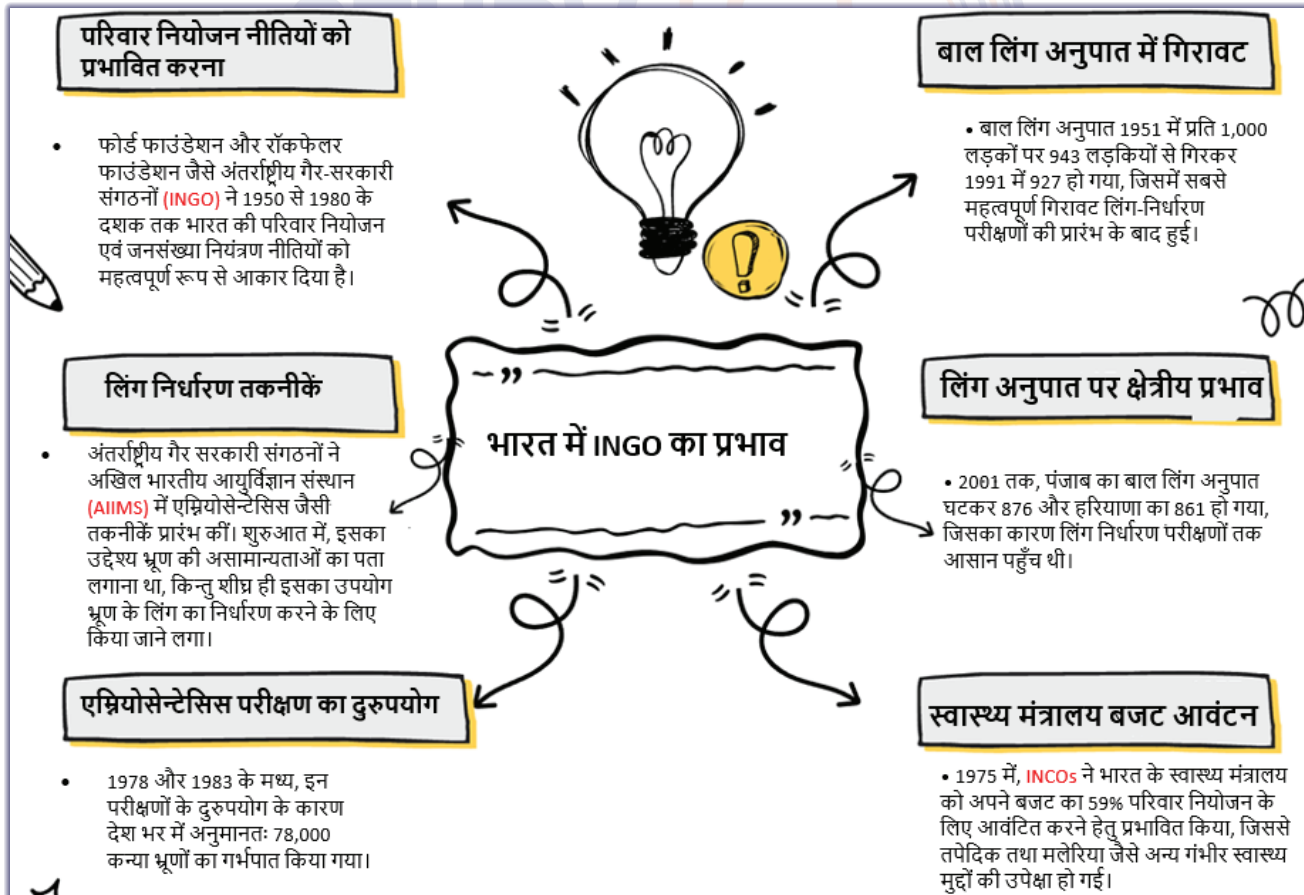 परिवार नियोजन नीतियों को
प्रभावित करना
• फोर्ड फाउंडेशन और रॉकफेलर
फाउंडेशन जैसे अंतर्राष्ट्रीय गैर-सरकारी
संगठनों (INGO) ने 1950 से 1980 के
दशक तक भारत की परिवार नियोजन
एवं जनसंख्या नियंत्रण नीतियों को
महत्वपूर्ण रूप से आकार दिया है।
लिंग निर्धारण तकनीकें
• अंतर्राष्ट्रीय गैर सरकारी संगठनों ने
अखिल भारतीय आयुर्विज्ञान संस्थान
(AIIMS) में एम्नियोसेन्टेसिस जैसी
तकनीकें प्रारंभ कीं। शुरुआत में, इसका
उद्देश्य भ्रूण की असामान्यताओं का पता
लगाना था, किन्तु शीघ्र ही इसका उपयोग
भ्रूण के लिंग का निर्धारण करने के लिए
किया जाने लगा।
एम्नियोसेन्टेसिस परीक्षण का दुरुपयोग
• 1978 और 1983 के मध्य, इन
परीक्षणों के दुरुपयोग के कारण
देश भर में अनुमानतः 78,000
कन्या भ्रूणों का गर्भपात किया गया।
भारत में INGO का प्रभाव
बाल लिंग अनुपात में गिरावट
• बाल लिंग अनुपात 1951 में प्रति 1,000
लड़कों पर 943 लड़कियों से गिरकर
1991 में 927 हो गया, जिसमें सबसे
महत्वपूर्ण गिरावट लिंग-निर्धारण
परीक्षणों की प्रारंभ के बाद हुई।
लिंग अनुपात पर क्षेत्रीय प्रभाव
• 2001 तक, पंजाब का बाल लिंग अनुपात
घटकर 876 और हरियाणा का 861 हो गया,
जिसका कारण लिंग निर्धारण परीक्षणों तक
आसान पहुँच थी।
स्वास्थ्य मंत्रालय बजट आवंटन
• 1975 में, INCOs ने भारत के स्वास्थ्य मंत्रालय
को अपने बजट का 59% परिवार नियोजन के
लिए आवंटित करने हेतु प्रभावित किया, जिससे
तपेदिक तथा मलेरिया जैसे अन्य गंभीर स्वास्थ्य
मुद्दों की उपेक्षा हो गई।